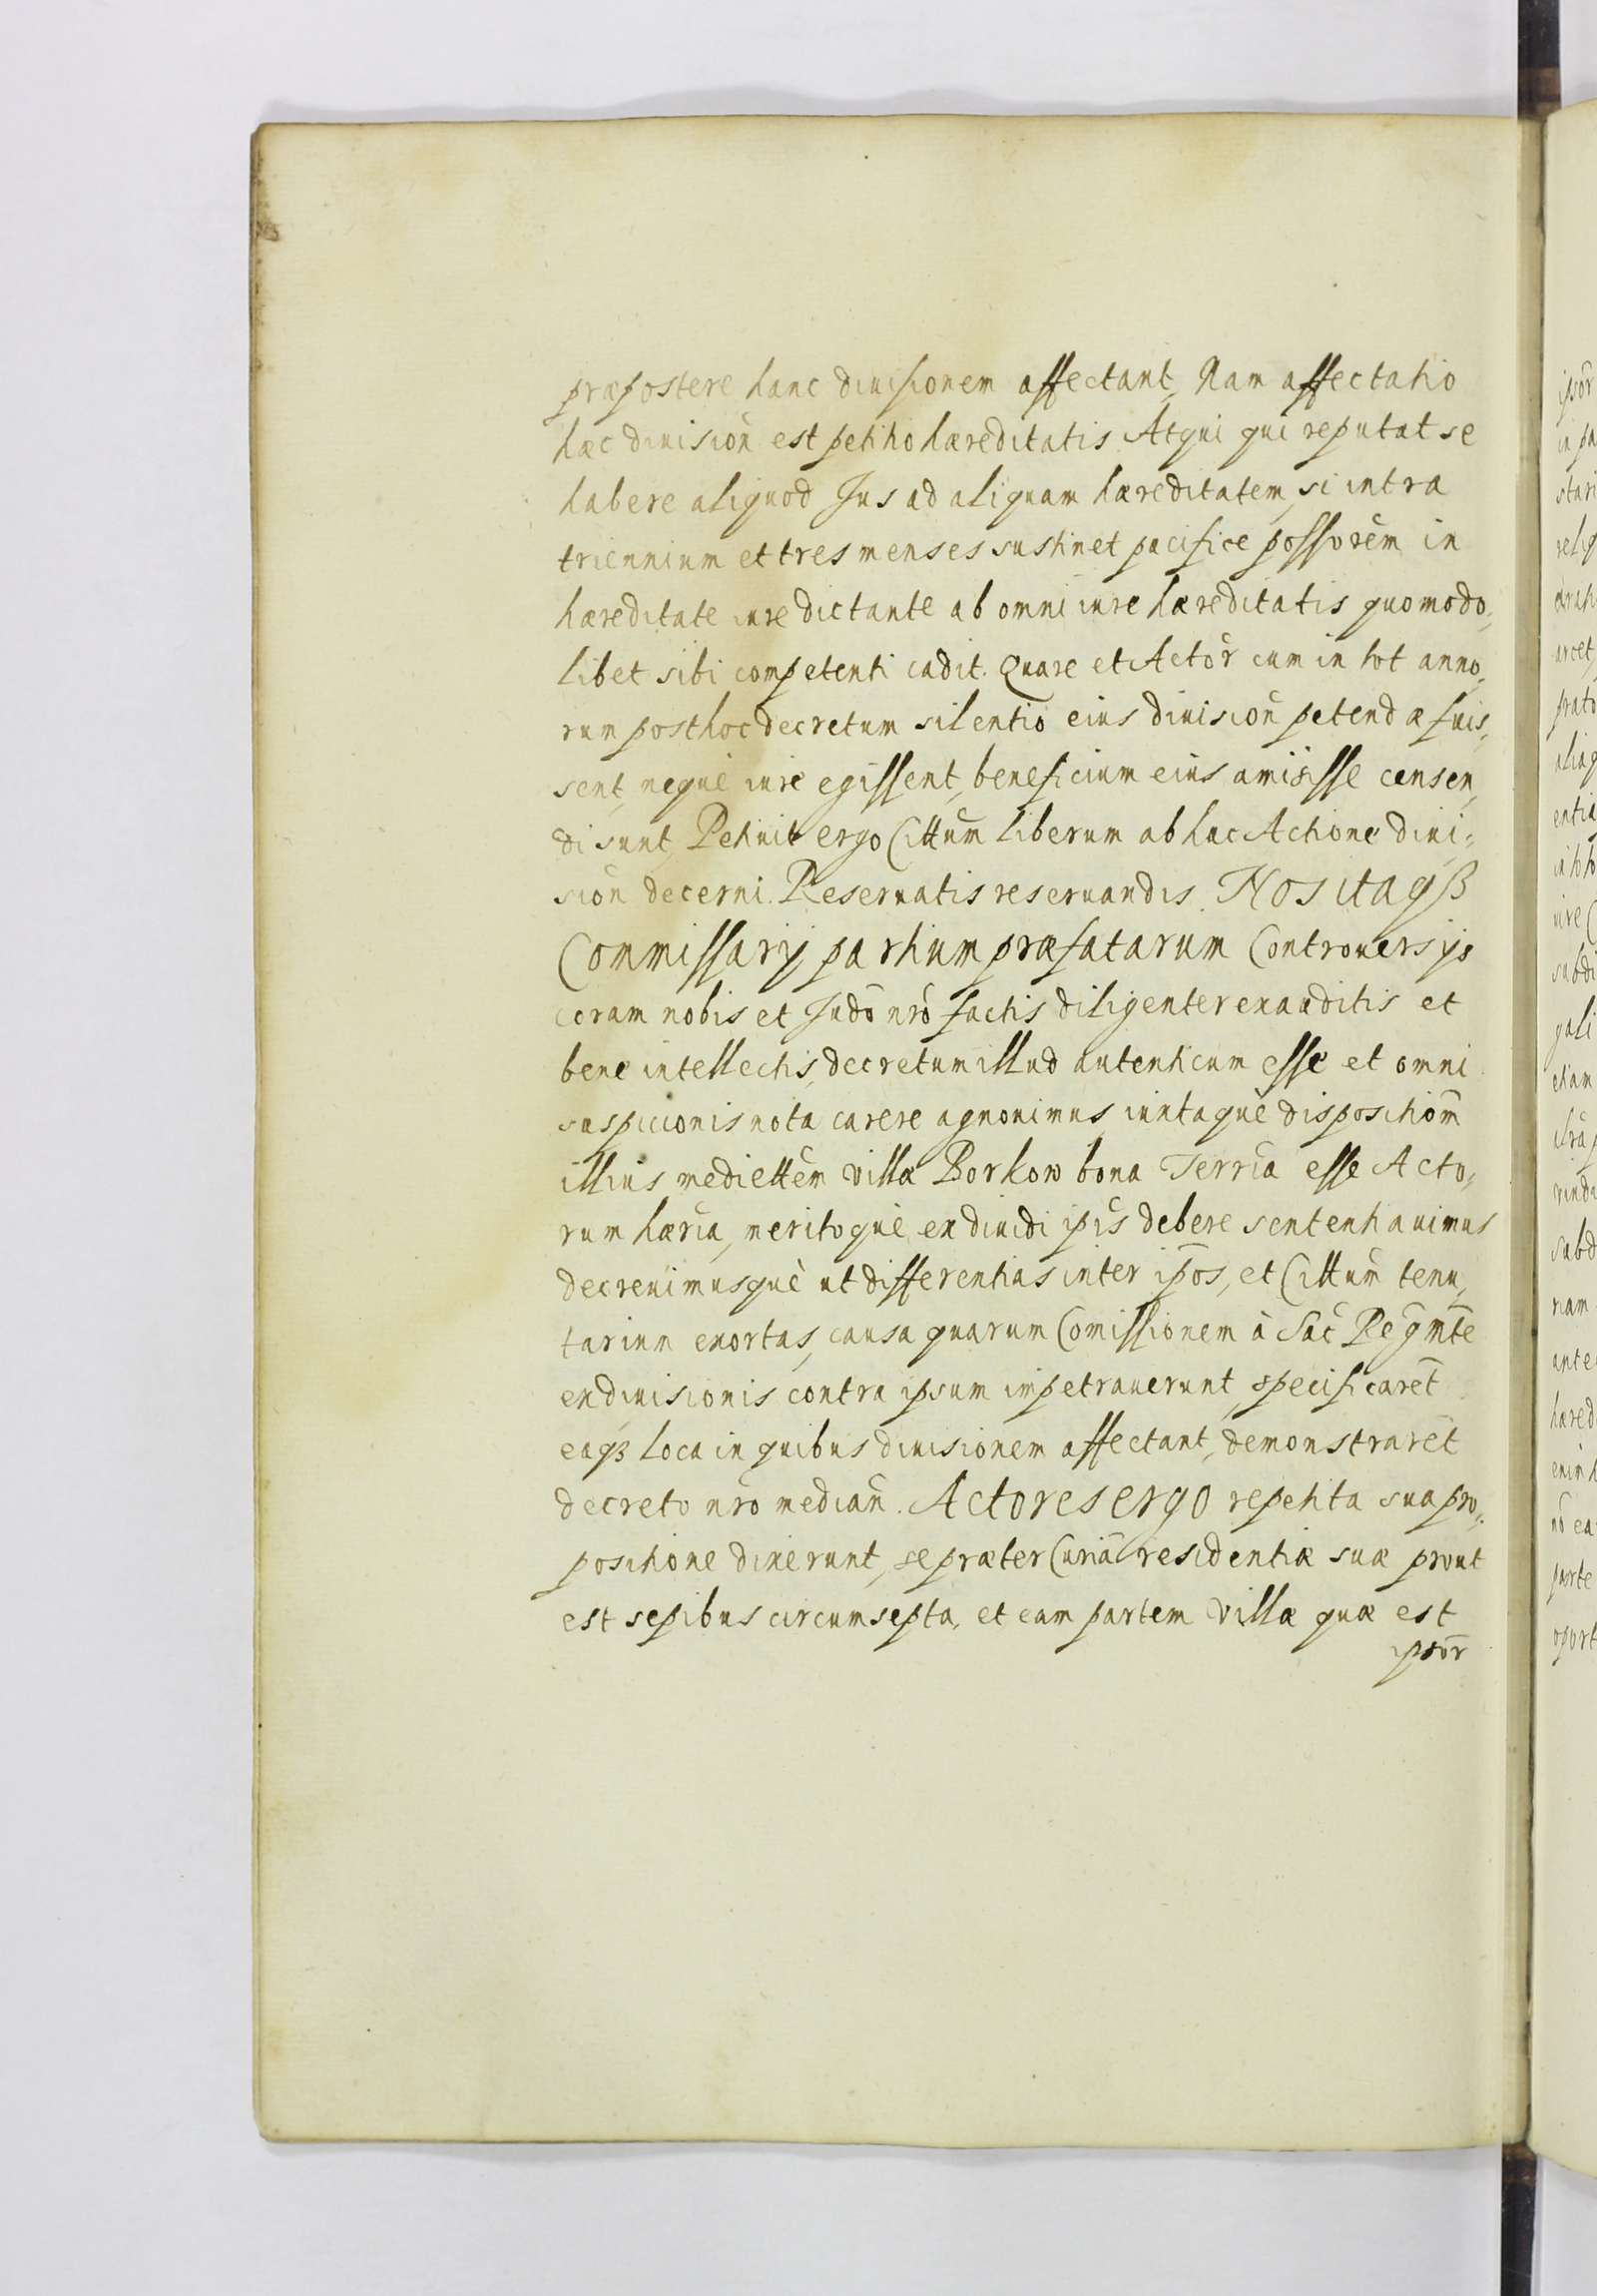 præpostere hanc diuisionem affectant, Nam affectatio
hæc division̄ est petitio hæreditatis Atqui qui reputat se
habere aliquod Jus ad aliquam hæreditatem, si intra
triennium et tres menses sustinet pacifice possorem̄ in
hæreditate iure dictante ab omni iure hæreditatis quomodo,,
libet sibi competenti cadit. Quare et Actor̄ cum in tot anno,,
rum post hoc decretum silentio eius diuision̄ petendæ fuis,,
sent, nequè iure egissent, beneficium eius amisisse censen,,
di sunt, Petiuit ergo Cittum̄ liberum ab hac Actione diui=
sion̄ decerni. Reseruatis reseruandis. Nos itaqꝫ
Commissarij partium præfatarum Controuersijs
coram nobis et Judō nrō factis diligenter exauditis et
bene intellectis, decretum illud autenticum esse et omni
suspicionis nota carere agnouimus iuxtaquè dispositiom̄
illius mediettem̄ villæ Borkow bona Terrīa esse Acto,,
rum hærīa, meritoquè exdiuidi ip̄is debere sententiauimus
decreuimusquè ut differentias inter ip̄os, et Cittum̄ tenu,,
tarium exortas, causa quarum Comissionem à Sac̄ Reḡ Mtē
exdiuisionis contra ipsum impetrauerunt, specificaret̄
eaqꝫ loca in quibus diuisionem affectant, demonstraret̄
decreto nrō median̄. Actores ergo repetita sua pro,,
positione dixerunt, se præter Curiā residentiæ suæ prout
est sepibus circumsepta, et eam partem villæ quæ est
ipsor̄
ipsor̄